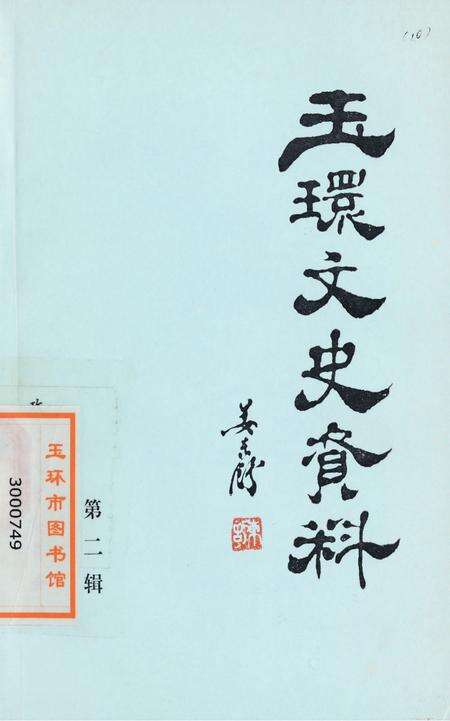 (10)
玉環文史資料
姜东舒
第二辑
玉环市图书馆
3000749